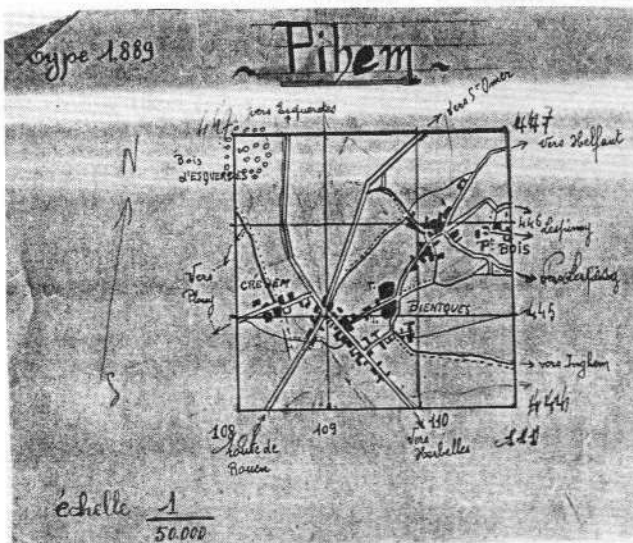 type 1889
Pihem
447 vers Esquerdes
vers St Omer
447
vers Helfaut
N
Bois
d'ESQUERDES
446
Lespinoy
Pt BOIS
Vers
CREHEM
BIENTQUES
445
S
vers Inghem
444
108
109
110
111
Route de
Rouen
vers
Herbelles
échelle 1
50.000